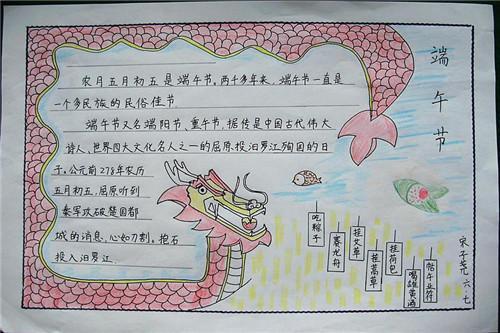 端午节
农月五月初五是端午节。两千多年来，端午节一直是
一个多民族的民俗佳节
端午节又名端阳节，重午节，据传是中国古代伟大
诗人、世界四大文化名人之一的屈原投汨罗江殉国的日
子。公元前278年农历
五月初五，屈原听到
秦军攻破楚国都
城的消息，心如刀割。抱石
投入汨罗江
吃粽子
赛龙舟
挂艾草
挂菖草
挂荷包
喝雄黄酒
六.七